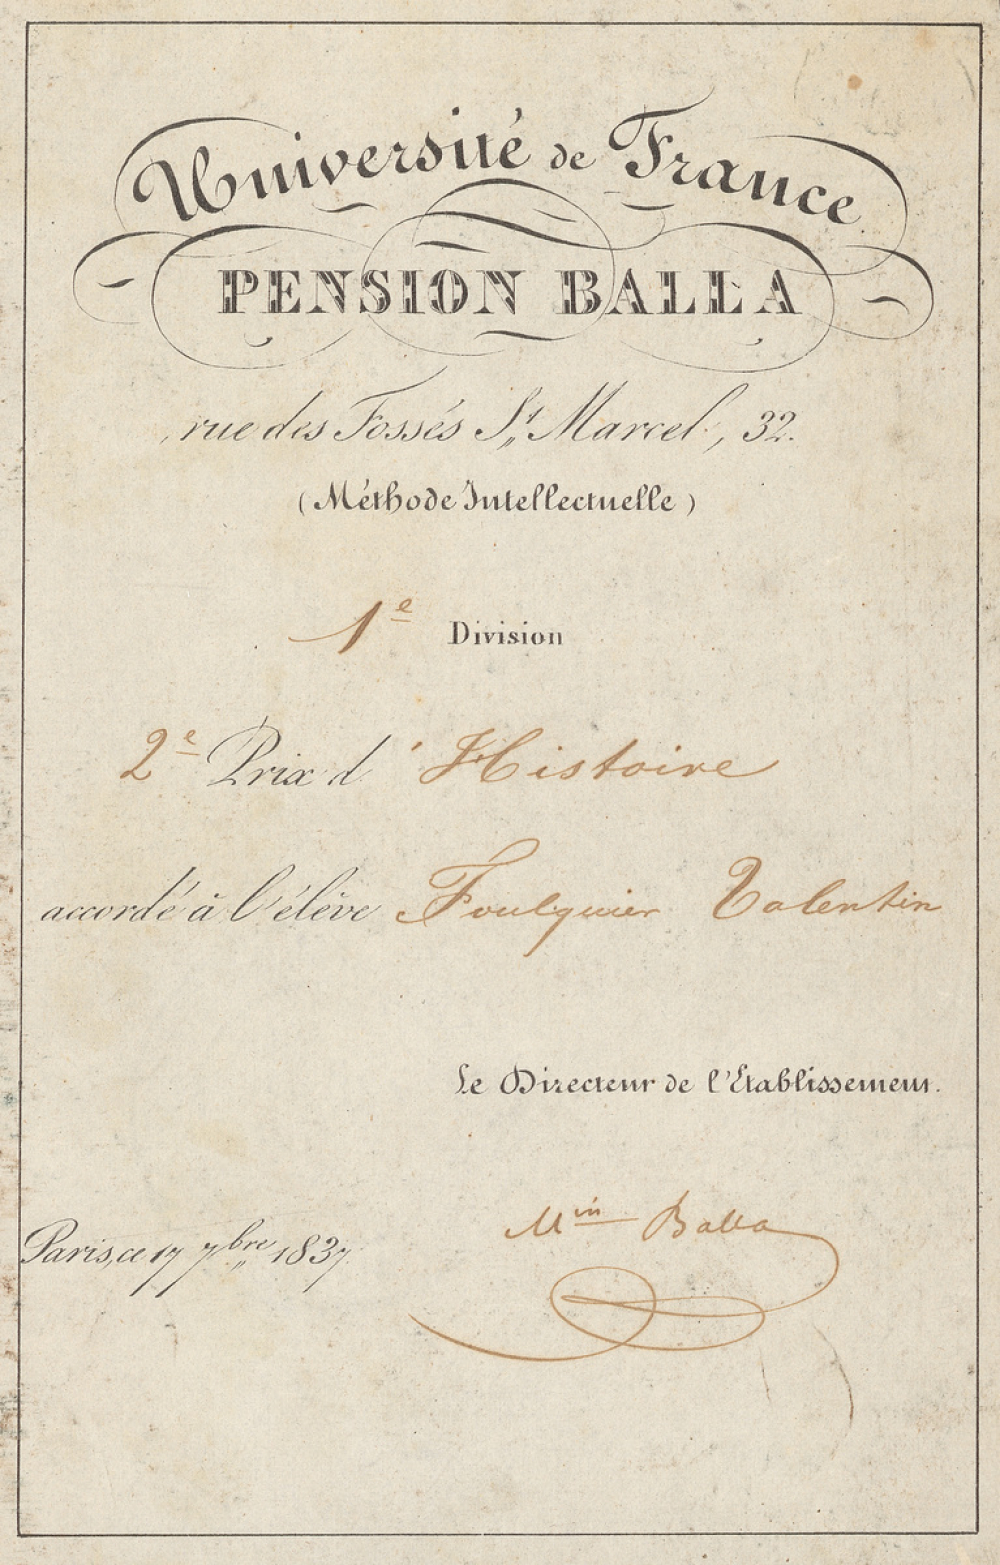 Université de France
PENSION BALLA
rue des Fossés St. Marcel, 32.
(Méthode Intellectuelle)
1e Division
2e Prix d'Histoire
accordé à l'élève Foulquier Valentin
Le Directeur de l'Etablissement.
Min Balla
Paris, ce 17 7bre 1837